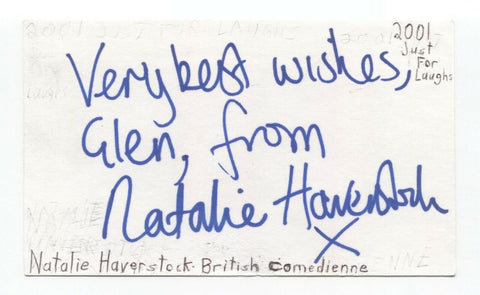 2001
Just
For
Laughs
Very best wishes,
Glen, from
Natalie Haverstock
X
Natalie Haverstock - British comedienne
2001 JUST FOR LAUGHS